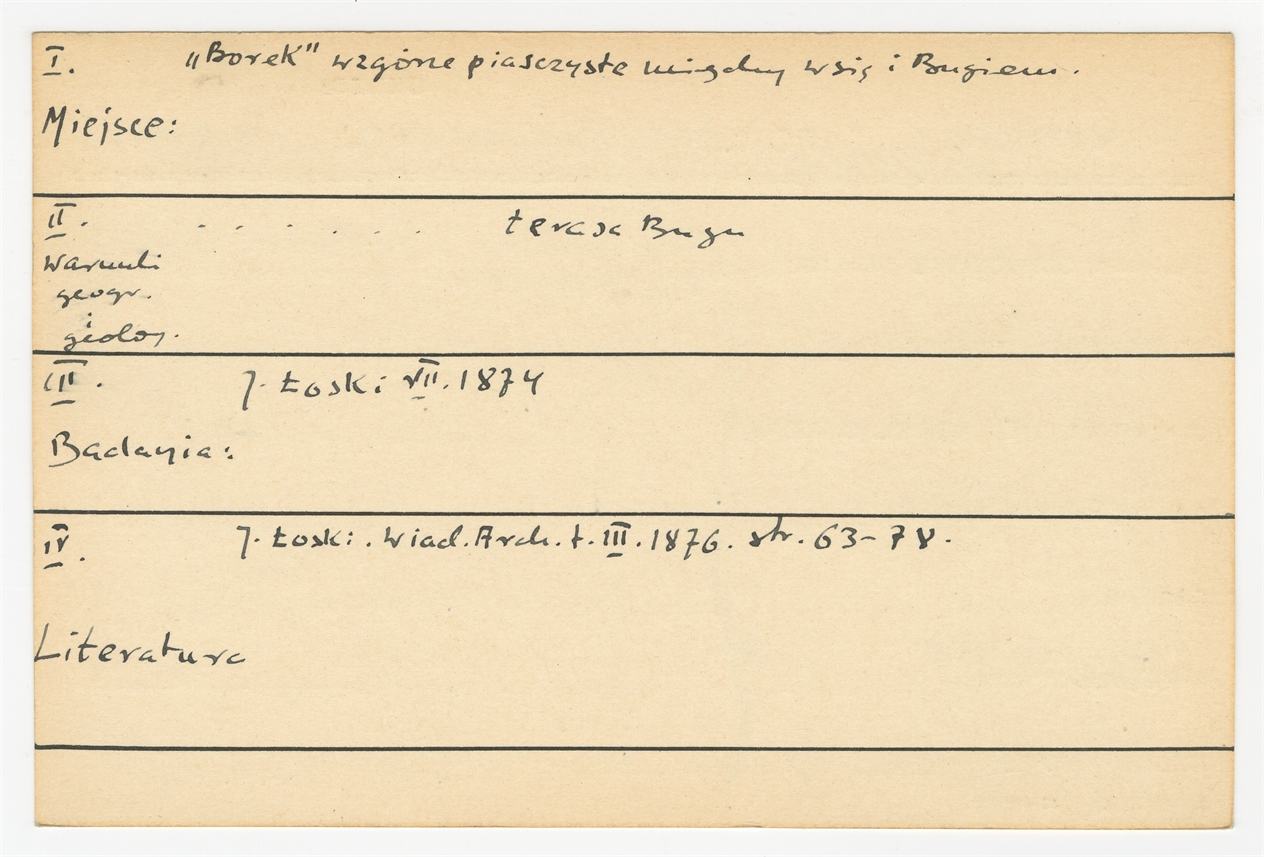 I. „Borek" wzgórze piasczyste między wsią i Bugiem.
Miejsce:
II. . . . . . . terasa Bugu
warunki
geogr.
i
geolog.
III. J. Łoski VII. 1874
Badania:
IV. J. Łoski. Wiad. Arch. t. III. 1876. str. 63-78.
Literatura